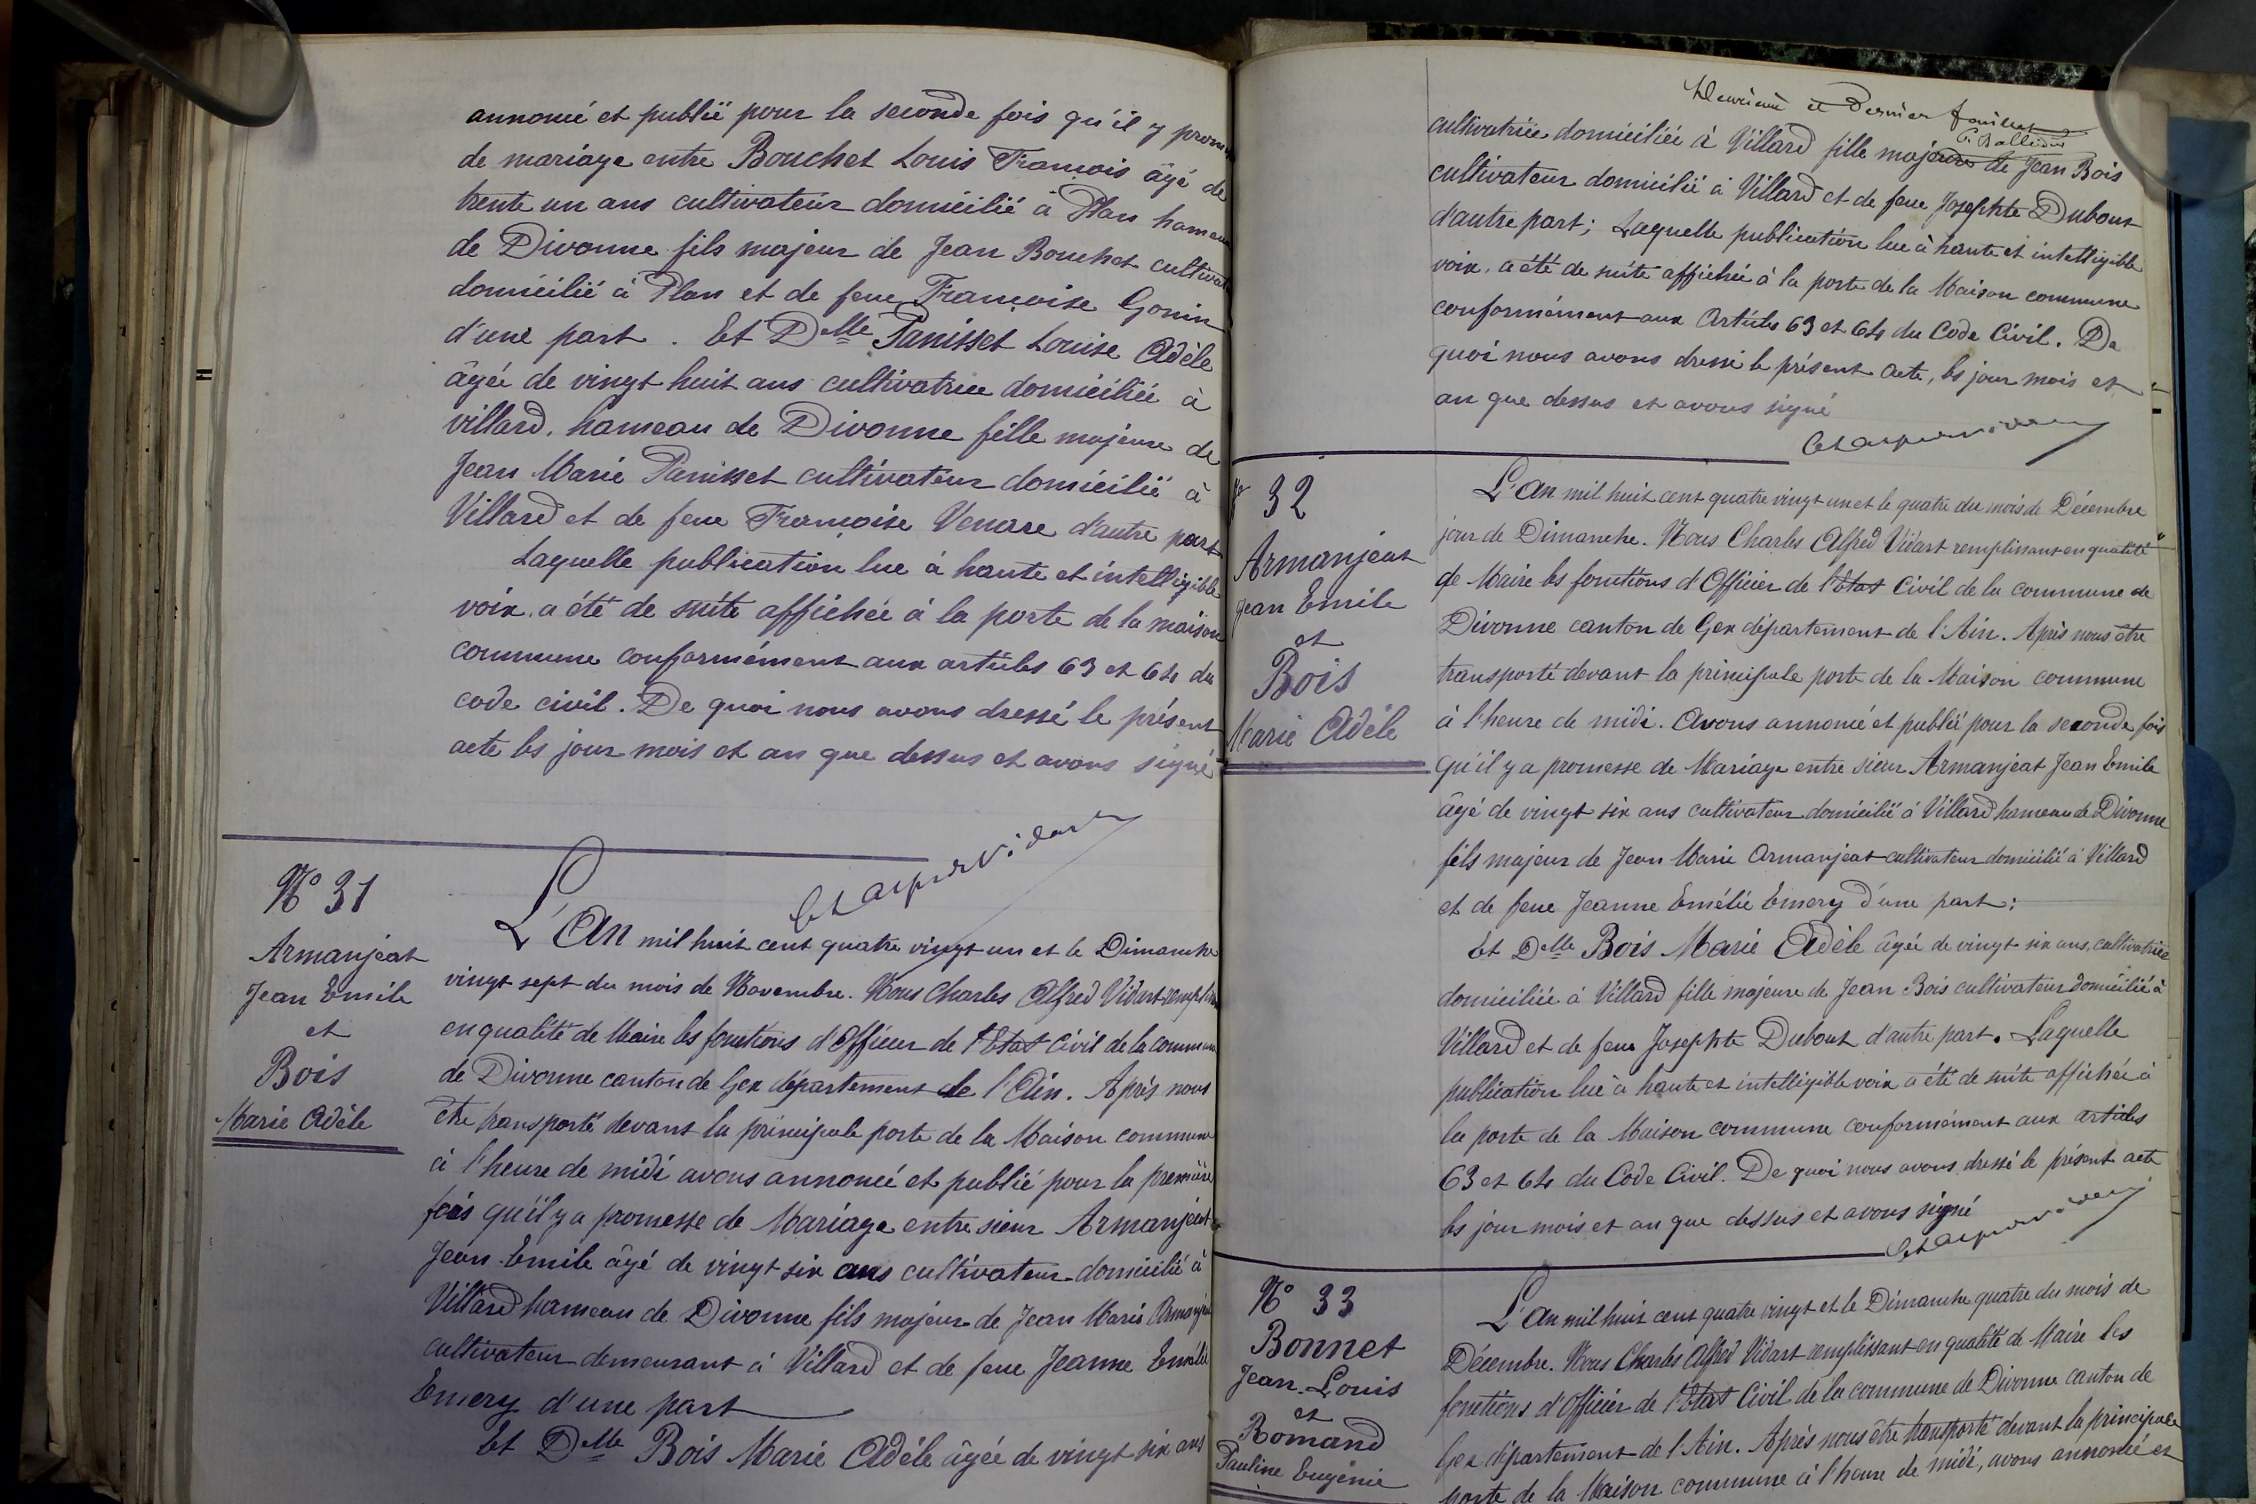 annoncé et publié pour la seconde fois qu'il y prom
de mariage entre Bouchet Louis François âgé de
trente un ans cultivateur domicilié à Plan hameau
de Divonne fils majeur de Jean Bouchet cultivat
domicilié à Plan et de feue Françoise Gonin
d'une part. Et Delle Panisset Louise Adèle
âgée de vingt huit ans cultivatrice domiciliée à
villard, hameau de Divonne fille majeure de
Jean Marie Panisset cultivateur domicilié à
Villard et de feue Françoise Venare d'autre part
Laquelle publication lue à haute et intelligible
voix, a été de suite affichée à la porte de la maison
commune conformément aux articles 63 et 64 du
code civil. De quoi nous avons dressé le présent
acte les jour mois et an que dessus et avons signé
N° 31
Armanjeat
Jean Emile
et
Bois
Marie Adèle
L'An mil huit cent quatre vingt un et le Dimanche
vingt sept du mois de Novembre. Nous Charles Alfred Vidart
en qualité de Maire les fonctions d'Officier de l'Etat Civil de la commune
de Divonne canton de Gex département de l'Ain. Après nous
être transporté devant la principale porte de la Maison commune
à l'heure de midi avons annoncé et publié pour la première
fois qu'il y a promesse de Mariage entre sieur Armanjeat
Jean Emile âgé de vingt six ans cultivateur domicilié à
Villard hameau de Divonne fils majeur de Jean Marie Armanjeat
cultivateur demeurant à Villard et de feue Jeanne Emélie
Emery d'une part
Et Delle Bois Marie Adèle âgée de vingt six ans
Deuxième et Dernier feuillet
cultivatrice domiciliée à Villard fille majeure de Jean Bois
cultivateur domicilié à Villard et de feue Josephte Dubout
d'autre part; Laquelle publication lue à haute et intelligible
voix, a été de suite affichée à la porte de la Maison commune
conformément aux Articles 63 et 64 du Code Civil. De
quoi nous avons dressé le présent acte, les jour mois et
an que dessus et avons signé
N° 32
Armanjeat
Jean Emile
et
Bois
Marie Adèle
L'An mil huit cent quatre vingt un et le quatre du mois de Décembre
jour de Dimanche. Nous Charles Alfred Vidart remplissant en qualité
de Maire les fonctions d'Officier de l'Etat Civil de la commune de
Divonne canton de Gex département de l'Ain. Après nous être
transporté devant la principale porte de la Maison commune
à l'heure de midi. Avons annoncé et publié pour la seconde fois
qu'il y a promesse de Mariage entre sieur Armanjeat Jean Emile
âgé de vingt six ans cultivateur domicilié à Villard hameau de Divonne
fils majeur de Jean Marie Armanjeat cultivateur domicilié à Villard
et de feue Jeanne Emélie Emery d'une part:
Et Delle Bois Marie Adèle âgée de vingt six ans, cultivatrice
domiciliée à Villard fille majeure de Jean Bois cultivateur domicilié à
Villard et de feue Josephte Dubout d'autre part. Laquelle
publication lue à haute et intelligible voix a été de suite affichée à
la porte de la Maison commune conformément aux articles
63 et 64 du Code Civil. De quoi nous avons dressé le présent acte
les jour mois et an que dessus et avons signé
N° 33
Bonnet
Jean Louis
et
Romand
Pauline Eugénie
L'An mil huit cent quatre vingt et le Dimanche quatre du mois de
Décembre. Nous Charles Alfred Vidart remplissant en qualité de Maire les
fonctions d'Officier de l'Etat Civil de la commune de Divonne canton de
Gex département de l'Ain. Après nous être transporté devant la principale
porte de la Maison commune à l'heure de midi, avons annoncé et